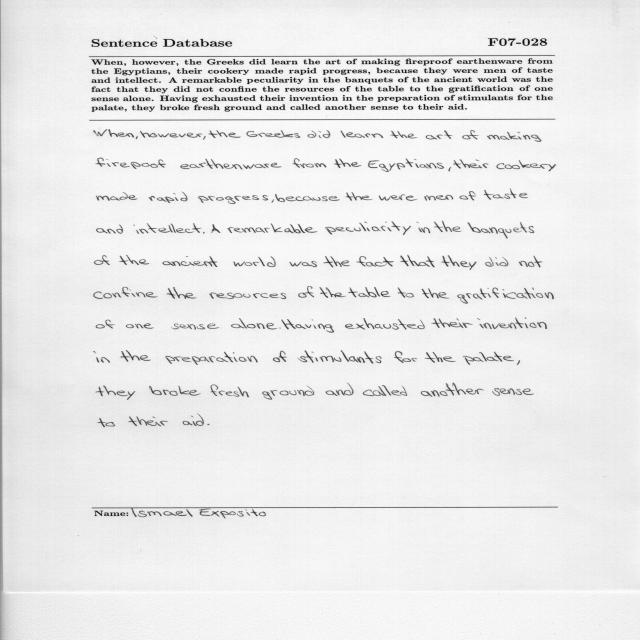 Sentence Database F07-028
When, however, the Greeks did learn the art of making fireproof earthenware from
the Egyptians, their cookery made rapid progress, because they were men of taste
and intellect. A remarkable peculiarity in the banquets of the ancient world was the
fact that they did not confine the resources of the table to the gratification of one
sense alone. Having exhausted their invention in the preparation of stimulants for the
palate, they broke fresh ground and called another sense to their aid.
When, however, the Greeks did learn the art of making
firepoof earthenware from the Egyptians, their cookery
made rapid progress, because the were men of taste
and intellect. A remarkable peculiarity in the banquets
of the ancient world was the fact that they did not
confine the resources of the table to the gratification
of one sense alone. Having exhausted their invention
in the preparation of stimulants for the palate,
they broke fresh ground and called another sense
to their aid.
Name: Ismael Exposito